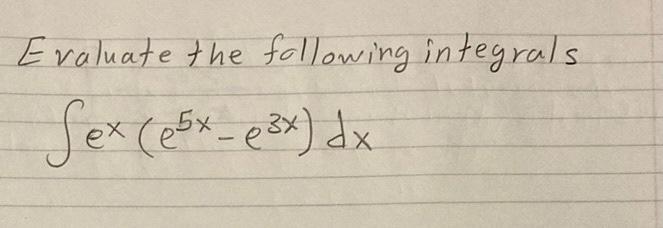 Evaluate the following integrals
∫eˣ (e⁵ˣ - e³ˣ) dx